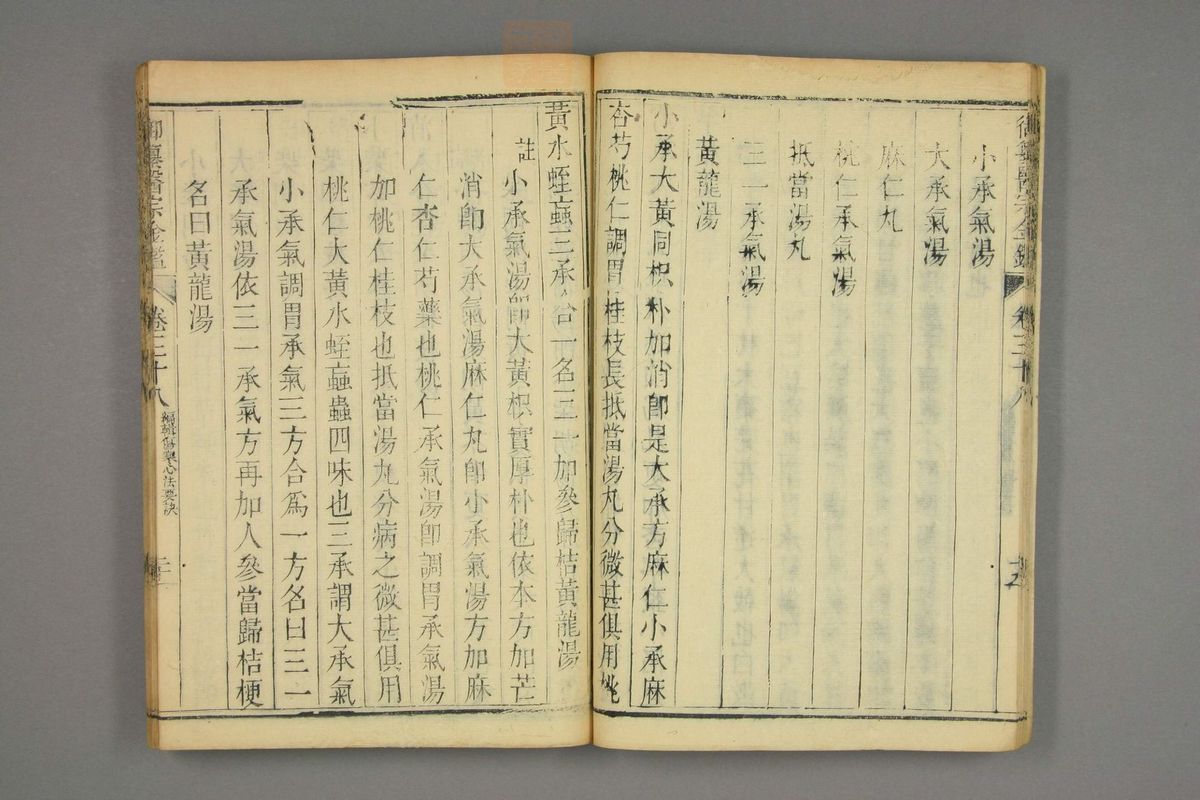 小承氣湯
大承氣湯
麻仁丸
桃仁承氣湯
抵當湯丸
三一承氣湯
黃龍湯
小承大黃同枳朴加消卽是大承方麻仁小承麻
杏芍桃仁調胃桂枝長抵當湯丸分微甚俱用桃
黃水蛭蝱三承合一名三一加參歸桔黃龍湯
註小承氣湯卽大黃枳實厚朴也依本方加芒
消卽大承氣湯麻仁丸卽小承氣湯方加麻
仁杏仁芍藥也桃仁承氣湯卽調胃承氣湯
加桃仁桂枝也抵當湯丸分病之微甚俱用
桃仁大黃水蛭蝱蟲四味也三承謂大承氣
小承氣調胃承氣三方合爲一方名曰三一
承氣湯依三一承氣方再加人參當歸桔梗
名曰黃龍湯
御纂醫宗金鑑 卷三十八 編輯傷寒心法要訣